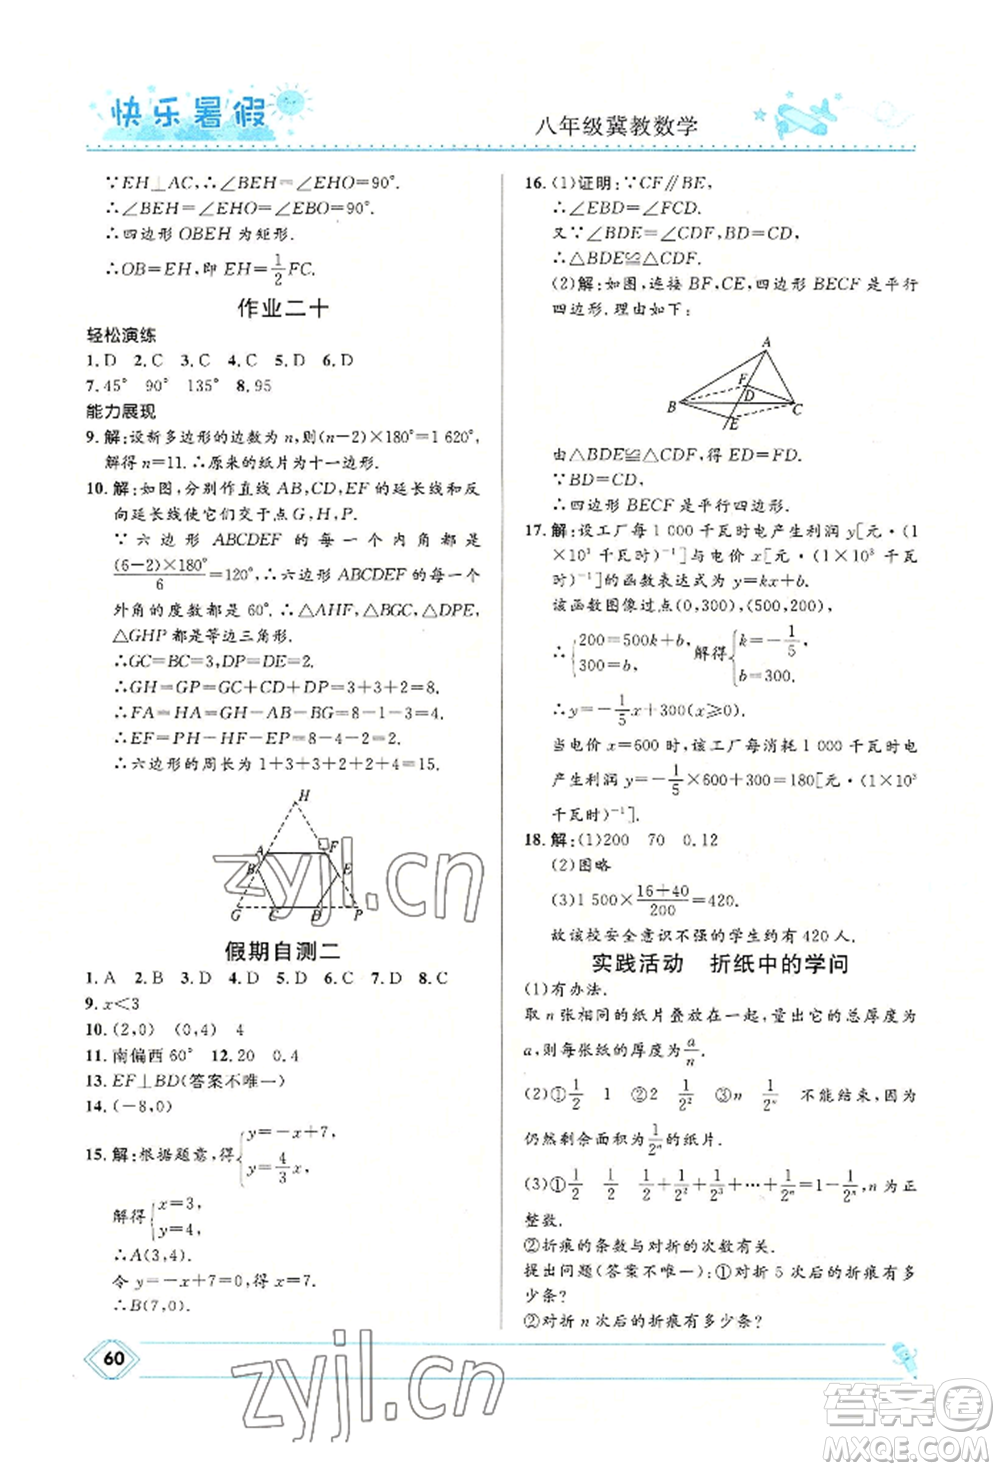 快乐暑假
八年级冀教数学
∵EH⊥AC,∴∠BEH=∠EHO=90°.
∴∠BEH=∠EHO=∠EBO=90°.
∴四边形 OBEH 为矩形.
∴OB=EH,即 EH=1/2FC.
作业二十
轻松演练
1.D 2.C 3.C 4.C 5.D 6.D
7.45° 90° 135° 8.95
能力展现
9.解:设新多边形的边数为 n,则(n-2)×180°=1 620°,
解得 n=11.∴原来的纸片为十一边形.
10.解:如图,分别作直线 AB,CD,EF 的延长线和反
向延长线使它们交于点 G,H,P.
∵六边形 ABCDEF 的每一个内角都是
(6-2)×180°/6=120°,∴六边形 ABCDEF 的每一个
外角的度数都是 60°.∴△AHF,△BGC,△DPE,
△GHP 都是等边三角形.
∴GC=BC=3,DP=DE=2.
∴GH=GP=GC+CD+DP=3+3+2=8.
∴FA=HA=GH-AB-BG=8-1-3=4.
∴EF=PH-HF-EP=8-4-2=2.
∴六边形的周长为 1+3+3+2+2+4=15.
H
A F
B E
G C D P
假期自测二
1.A 2.B 3.D 4.D 5.C 6.C 7.D 8.D
9.x<3
10.(2,0) (0,4) 4
11.南偏西 60° 12.20 0.4
13.EF⊥BD(答案不唯一)
14.(-8,0)
15.解:根据题意,得{y=-x+7, y=4/3x.
解得{x=3, y=4,
∴A(3,4).
令 y=-x+7=0,得 x=7.
∴B(7,0).
16.(1)证明:∵CF∥BE,
∴∠EBD=∠FCD.
又∵∠BDE=∠CDF,BD=CD,
∴△BDE≌△CDF.
(2)解:如图,连接 BF,CE,四边形 BECF 是平行
四边形.理由如下:
A
F
D
B C
E
由△BDE≌△CDF,得 ED=FD.
∵BD=CD,
∴四边形 BECF 是平行四边形.
17.解:设工厂每 1 000 千瓦时电产生利润 y[元·(1
×10³千瓦时)⁻¹]与电价 x[元·(1×10³ 千瓦
时)⁻¹]的函数表达式为 y=kx+b.
该函数图像过点(0,300),(500,200),
∴{200=500k+b, 300=b, 解得{k=-1/5, b=300.
∴y=-1/5x+300(x≥0).
当电价 x=600 时,该工厂每消耗 1 000 千瓦时电
产生利润 y=-1/5×600+300=180[元·(1×10³
千瓦时)⁻¹].
18.解:(1)200 70 0.12
(2)图略
(3)1 500×(16+40)/200=420.
故该校安全意识不强的学生约有 420 人.
实践活动 折纸中的学问
(1)有办法.
取 n 张相同的纸片叠放在一起,量出它的总厚度为
a,则每张纸的厚度为a/n.
(2)①1/2 ②1/2² ③n 1/2ⁿ 不能结束,因为
仍然剩余面积为1/2ⁿ的纸片.
(3)①1/2 1/2 1/2+1/2²+1/2³+…+1/2ⁿ=1-1/2ⁿ,n 为正
整数.
②折痕的条数与对折的次数有关.
提出问题(答案不唯一):①对折 5 次后的折痕有多
少条?
②对折 n 次后的折痕有多少条?
60
zyjl.cn
zyjl.cn
答案圈
MXQE.COM